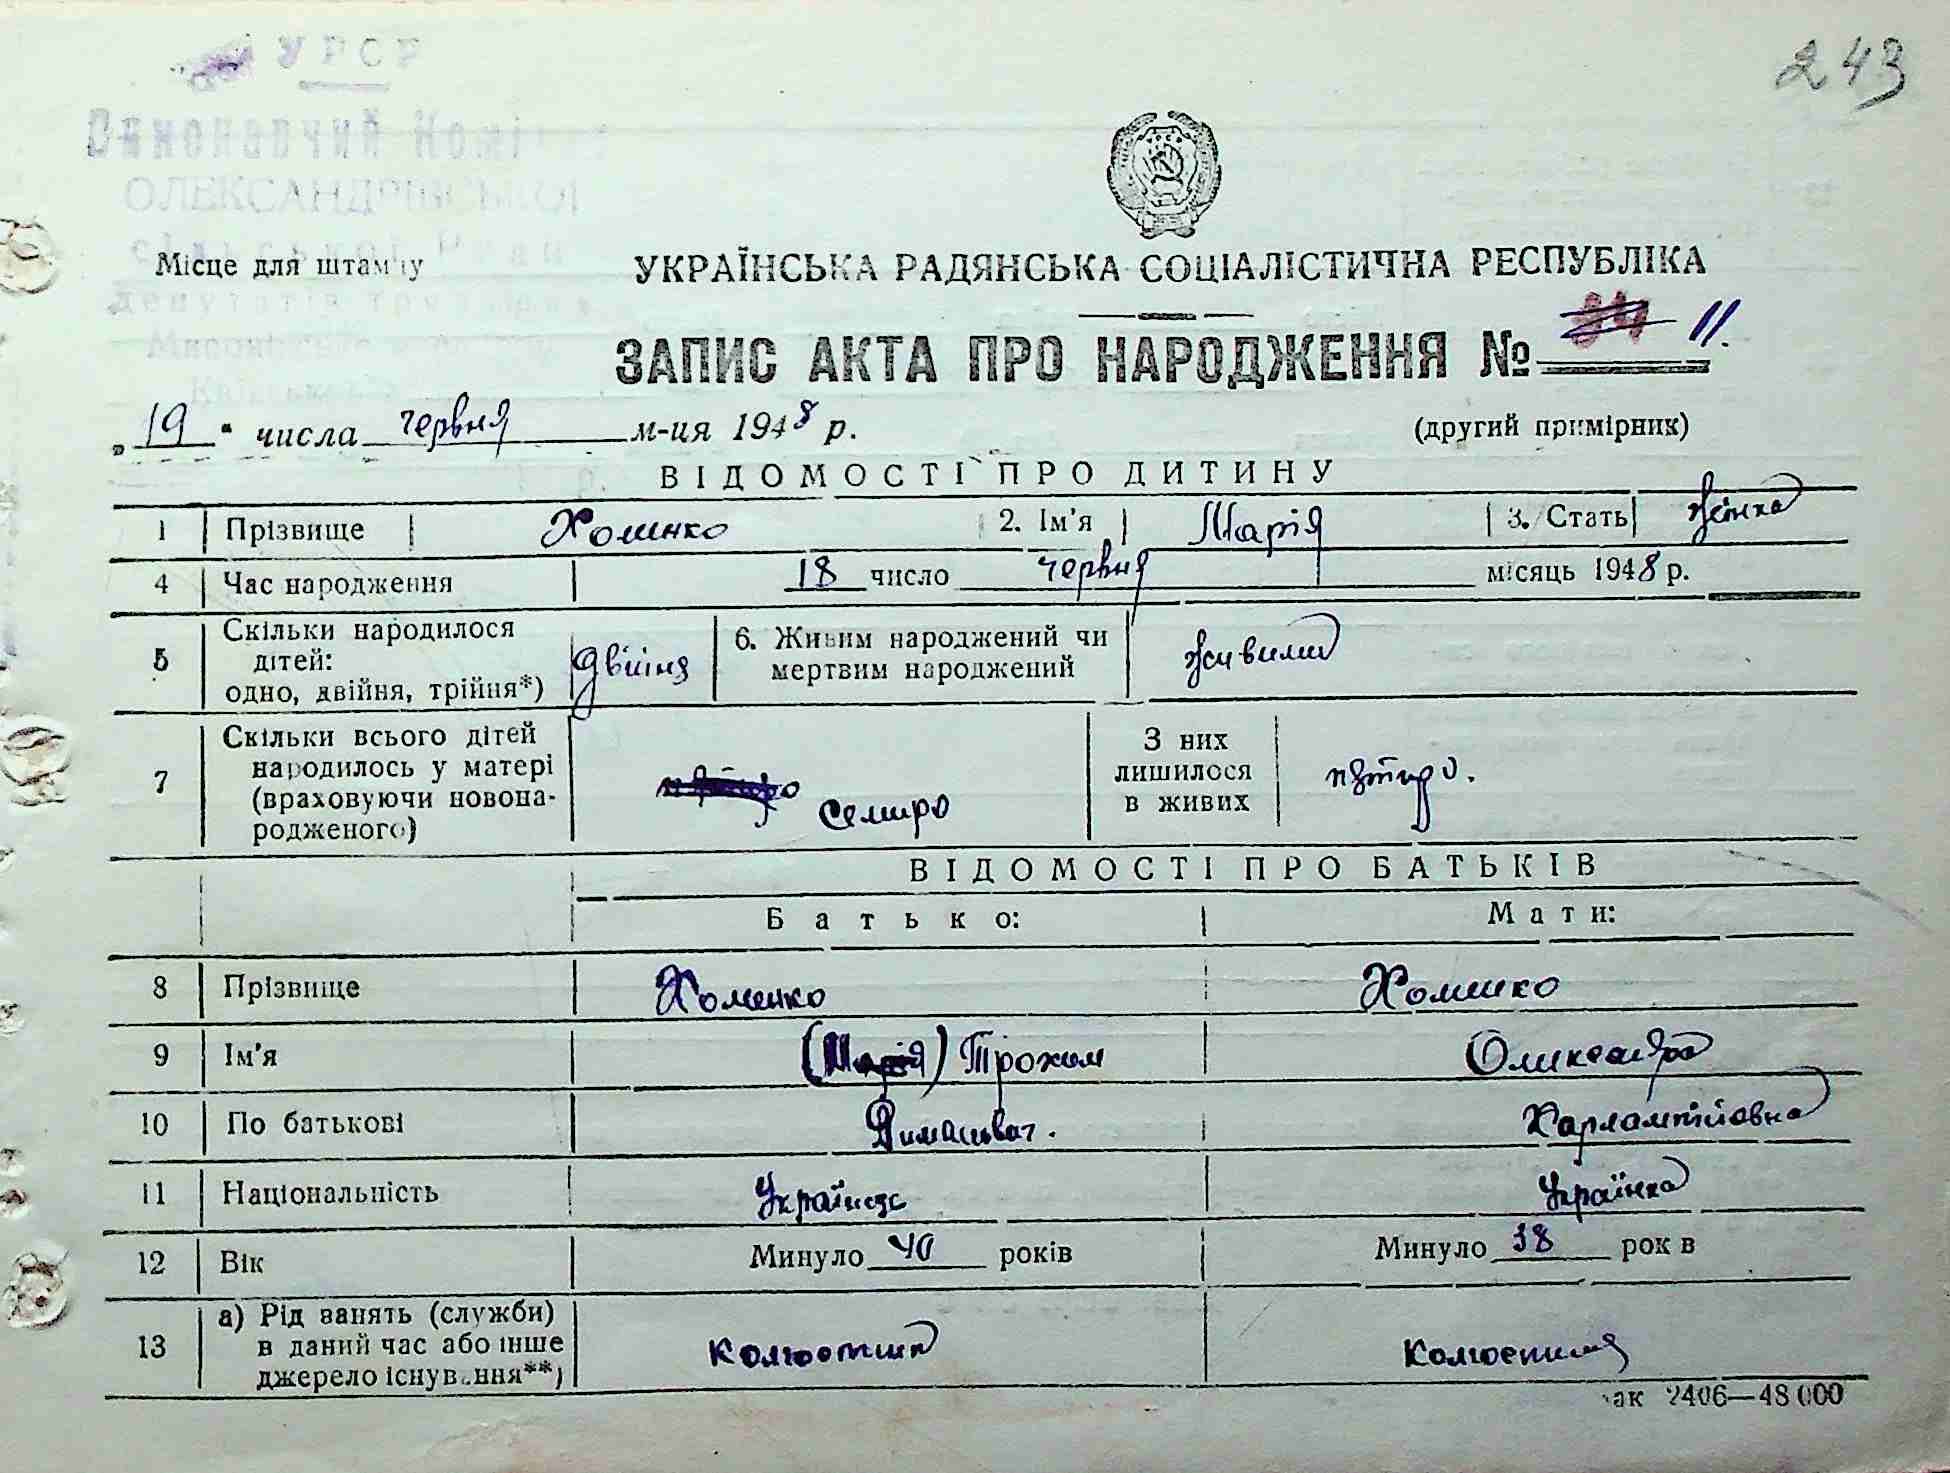 243
УРСР
Виконавчий Комі
ОЛЕКСАНДРІВСЬКОЇ
сільської Ради
депутатів трудящих
Місце для штампу
УКРАЇНСЬКА РАДЯНСЬКА СОЦІАЛІСТИЧНА РЕСПУБЛІКА
ЗАПИС АКТА ПРО НАРОДЖЕННЯ № 11.
„19“ числа червня м-ця 1948 р.
(другий примірник)
ВІДОМОСТІ ПРО ДИТИНУ
1 Прізвище Хоменко 2. Ім'я Марія 3. Стать жінка
4 Час народження 18 число червня місяць 1948 р.
5 Скільки народилося дітей: одно, двійня, трійня*) двійня 6. Живим народжений чи мертвим народжений живими
7 Скільки всього дітей народилось у матері (враховуючи новонародженого) семиро З них лишилося в живих пятиро.
ВІДОМОСТІ ПРО БАТЬКІВ
Батько: Мати:
8 Прізвище Хоменко Хоменко
9 Ім'я (Марія) Трохим Олександра
10 По батькові Харлампійовна
11 Національність Українець Українка
12 Вік Минуло 40 років Минуло 38 рок в
13 а) Рід занять (служби) в даний час або інше джерело існування**) колгоспник колгоспниця
ак 2406—48 000